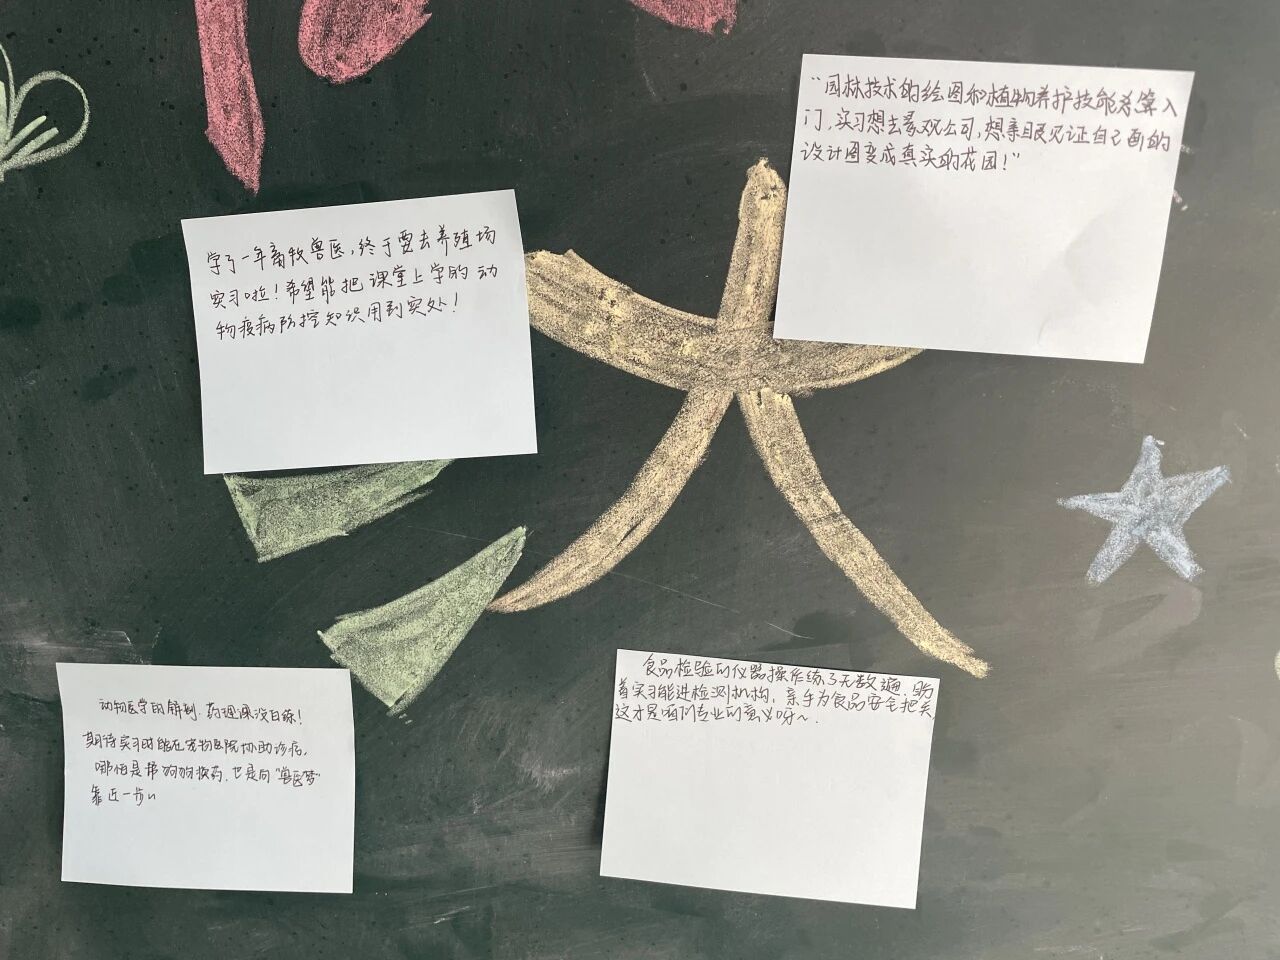 “园林技术的绘图和植物养护技能总算入
门，实习想去景观公司，想亲眼见证自己画的
设计图变成真实的花园！”
学了一年畜牧兽医，终于要去养殖场
实习啦！希望能把课堂上学的动
物疫病防控知识用到实处！
动物医学的解剖、药理课没白练！
期待实习时能在宠物医院协助诊病，
哪怕是帮狗狗换药，也是向“兽医梦”
靠近一步～
食品检验的仪器操作练了无数遍，盼
着实习能进检测机构，亲手为食品安全把关，
这才是咱们专业的意义呀～